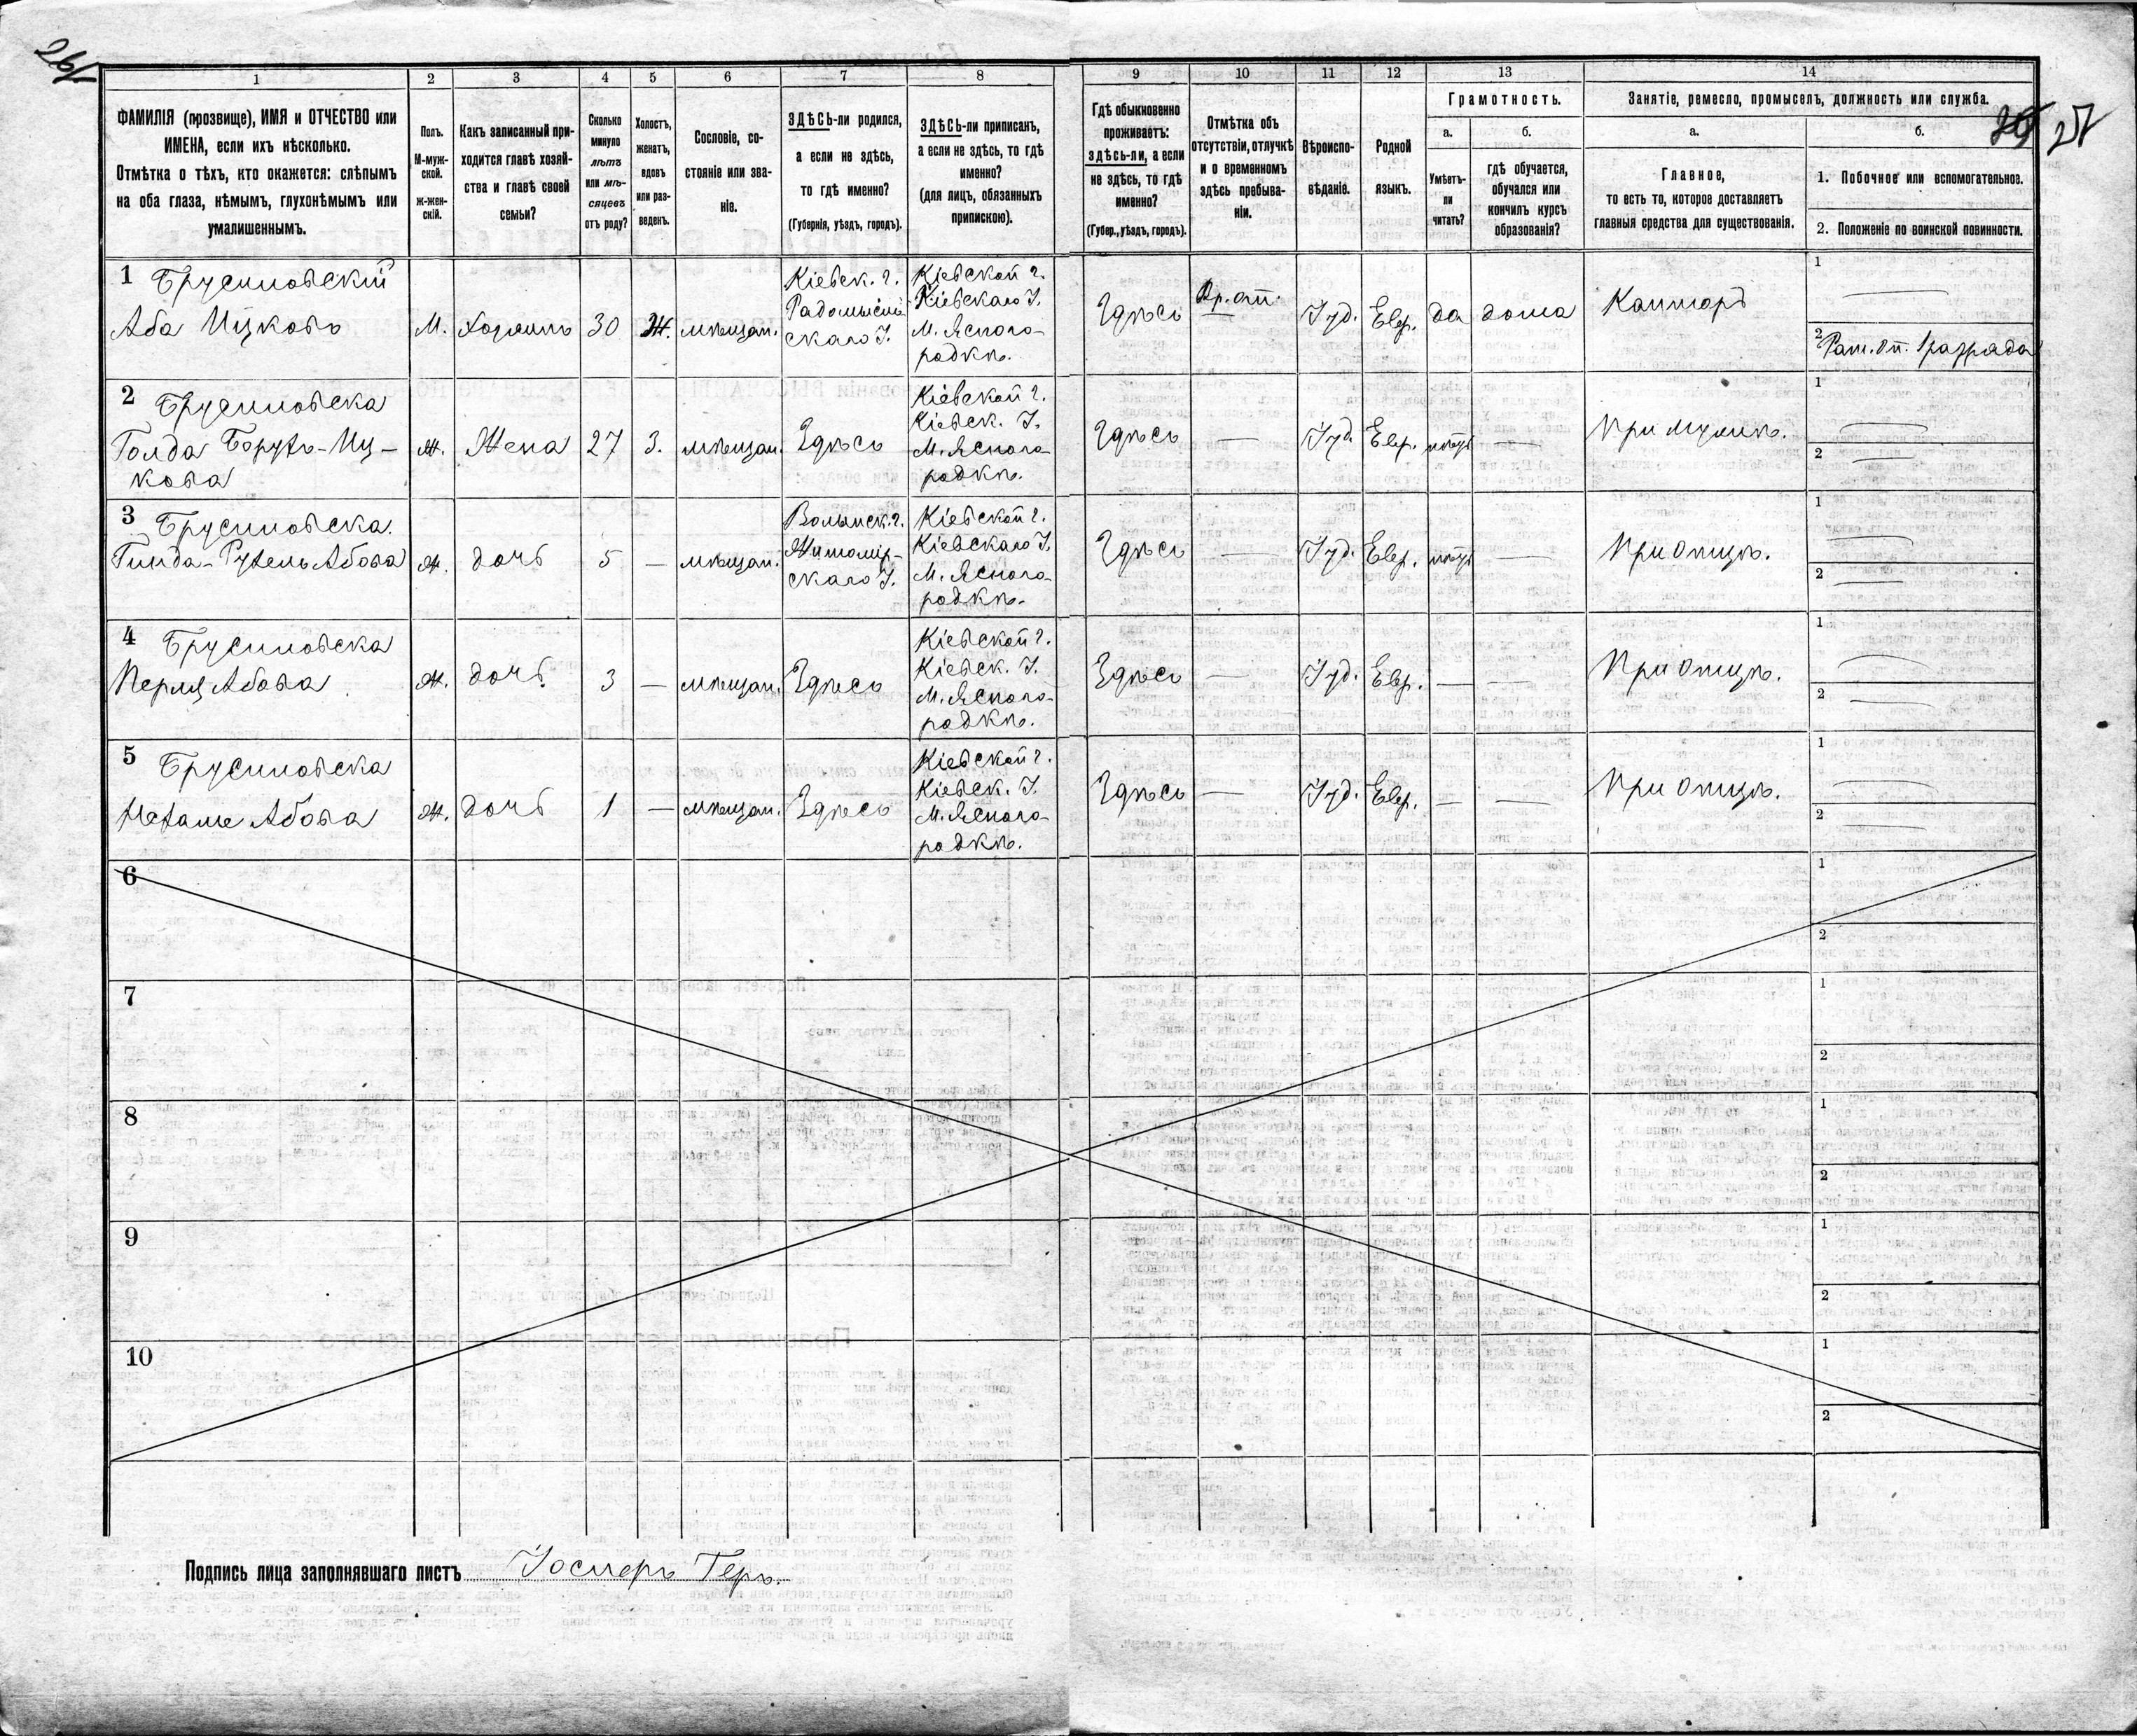 1
2
3
4
5
6
7
8
9
10
11
12
13
14
ФАМИЛІЯ (прозвище), ИМЯ и ОТЧЕСТВО или
ИМЕНА, если ихъ нѣсколько.
Отмѣтка о тѣхъ, кто окажется: слѣпымъ
на оба глаза, нѣмымъ, глухонѣмымъ или
умалишеннымъ.
Полъ.
М-муж-
ской.
ж-жен-
скій.
Какъ записанный при-
ходится главѣ хозяй-
ства и главѣ своей
семьи?
Сколько
минуло
лѣтъ
или мѣ-
сяцевъ
отъ роду?
Холостъ,
женатъ,
вдовъ
или раз-
веденъ.
Сословіе, со-
стояніе или зва-
ніе.
ЗДѢСЬ-ли родился,
а если не здѣсь,
то гдѣ именно?
(Губернія, уѣздъ, городъ).
ЗДѢСЬ-ли приписанъ,
а если не здѣсь, то гдѣ
именно?
(для лицъ, обязанныхъ
припискою).
Гдѣ обыкновенно
проживаетъ:
здѣсь-ли, а если
не здѣсь, то гдѣ
именно?
(Губер., уѣздъ, городъ).
Отмѣтка объ
отсутствіи, отлучкѣ
и о временномъ
здѣсь пребыва-
ніи.
Вѣроиспо-
вѣданіе.
Родной
языкъ.
Грамотность.
а.
Умѣетъ-
ли
читать?
б.
гдѣ обучается,
обучался или
кончилъ курсъ
образованія?
Занятіе, ремесло, промыселъ, должность или служба.
а.
Главное,
то есть то, которое доставляетъ
главныя средства для существованія.
б.
1. Побочное или вспомогательное.
2. Положеніе по воинской повинности.
27
1 Брусиловскій
Аба Ицковъ
М.
Хозяинъ
30
Ж.
мѣщан.
Кіевск. г.
Радомысль
скаго У.
Кіевской г.
Кіевскаго У.
М. Ясного-
родкѣ.
Здѣсь
Вр. от.
Іуд.
Евр.
да
дома
Канторъ
1
2 Рат. оп. 1 разряда
2 Брусиловска
Голда Борухъ-Иц-
кова
ж.
Жена
27
З.
мѣщан.
Здѣсь
Кіевской г.
Кіевск. У.
М. Ясного-
родкѣ.
Здѣсь
—
Іуд.
Евр.
нѣтъ
—
При мужѣ.
1
2
3 Брусиловска.
Гинда-Рухель Абова
ж.
дочь
5
—
мѣщан.
Волынск. г.
Житомір-
скаго У.
Кіевской г.
Кіевскаго У.
М. Ясного-
родкѣ.
Здѣсь
—
Іуд.
Евр.
нѣтъ
—
При отцѣ.
1
2
4 Брусиловска
Перля Абова
ж.
дочь
3
—
мѣщан.
Здѣсь
Кіевской г.
Кіевск. У.
М. Ясного-
родкѣ.
Здѣсь
—
Іуд.
Евр.
—
—
При отцѣ.
1
2
5 Брусиловска
Нехаме Абова
ж.
дочь
1
—
мѣщан.
Здѣсь
Кіевской г.
Кіевск. У.
М. Ясного-
родкѣ.
Здѣсь
—
Іуд.
Евр.
—
—
При отцѣ.
1
2
6
1
2
7
1
2
8
1
2
9
1
2
10
1
2
Подпись лица заполнявшаго листъ